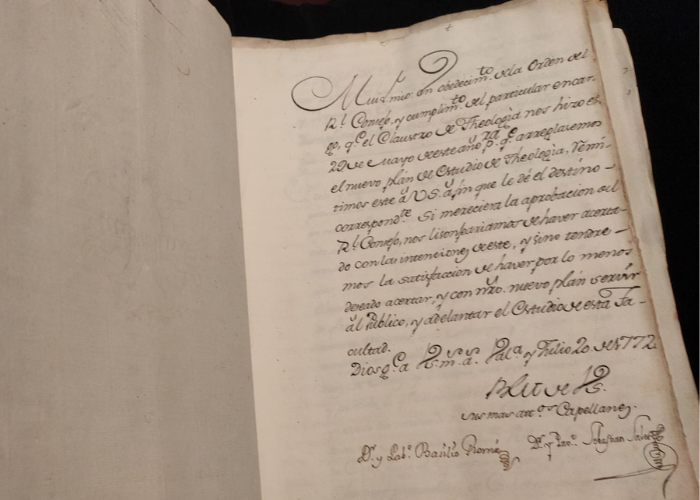 Mui S.r mio: en obedecim.to de la Orden del
R.l Consejo, y cumplim.to del particular encar-
go, q.e el Claustro de Theologia nos hizo el
29 de Mayo de este año p.ra q.e arreglasemos
el nuevo plan de Estudio de Theologia, remi-
timos este â V.S. â fin que le dé el destino
correspond.te. Si mereciera la aprobacion del
R.l Consejo, nos lisonjeariamos de haver acerta-
do con las intenciones de este, y sino tendre-
mos la satisfaccion de haver por lo menos
deseado acertar, y con nr̃o. nuevo plán servir
âl Público, y adelantar el Estudio de esta Fa-
cultad.
Dios g.e a V.S. m.s a.s y Julio 20 de 1772
B L M de V.S.
sus mas att.os Capellanes
D.r y Basilio D.r y Sebastian